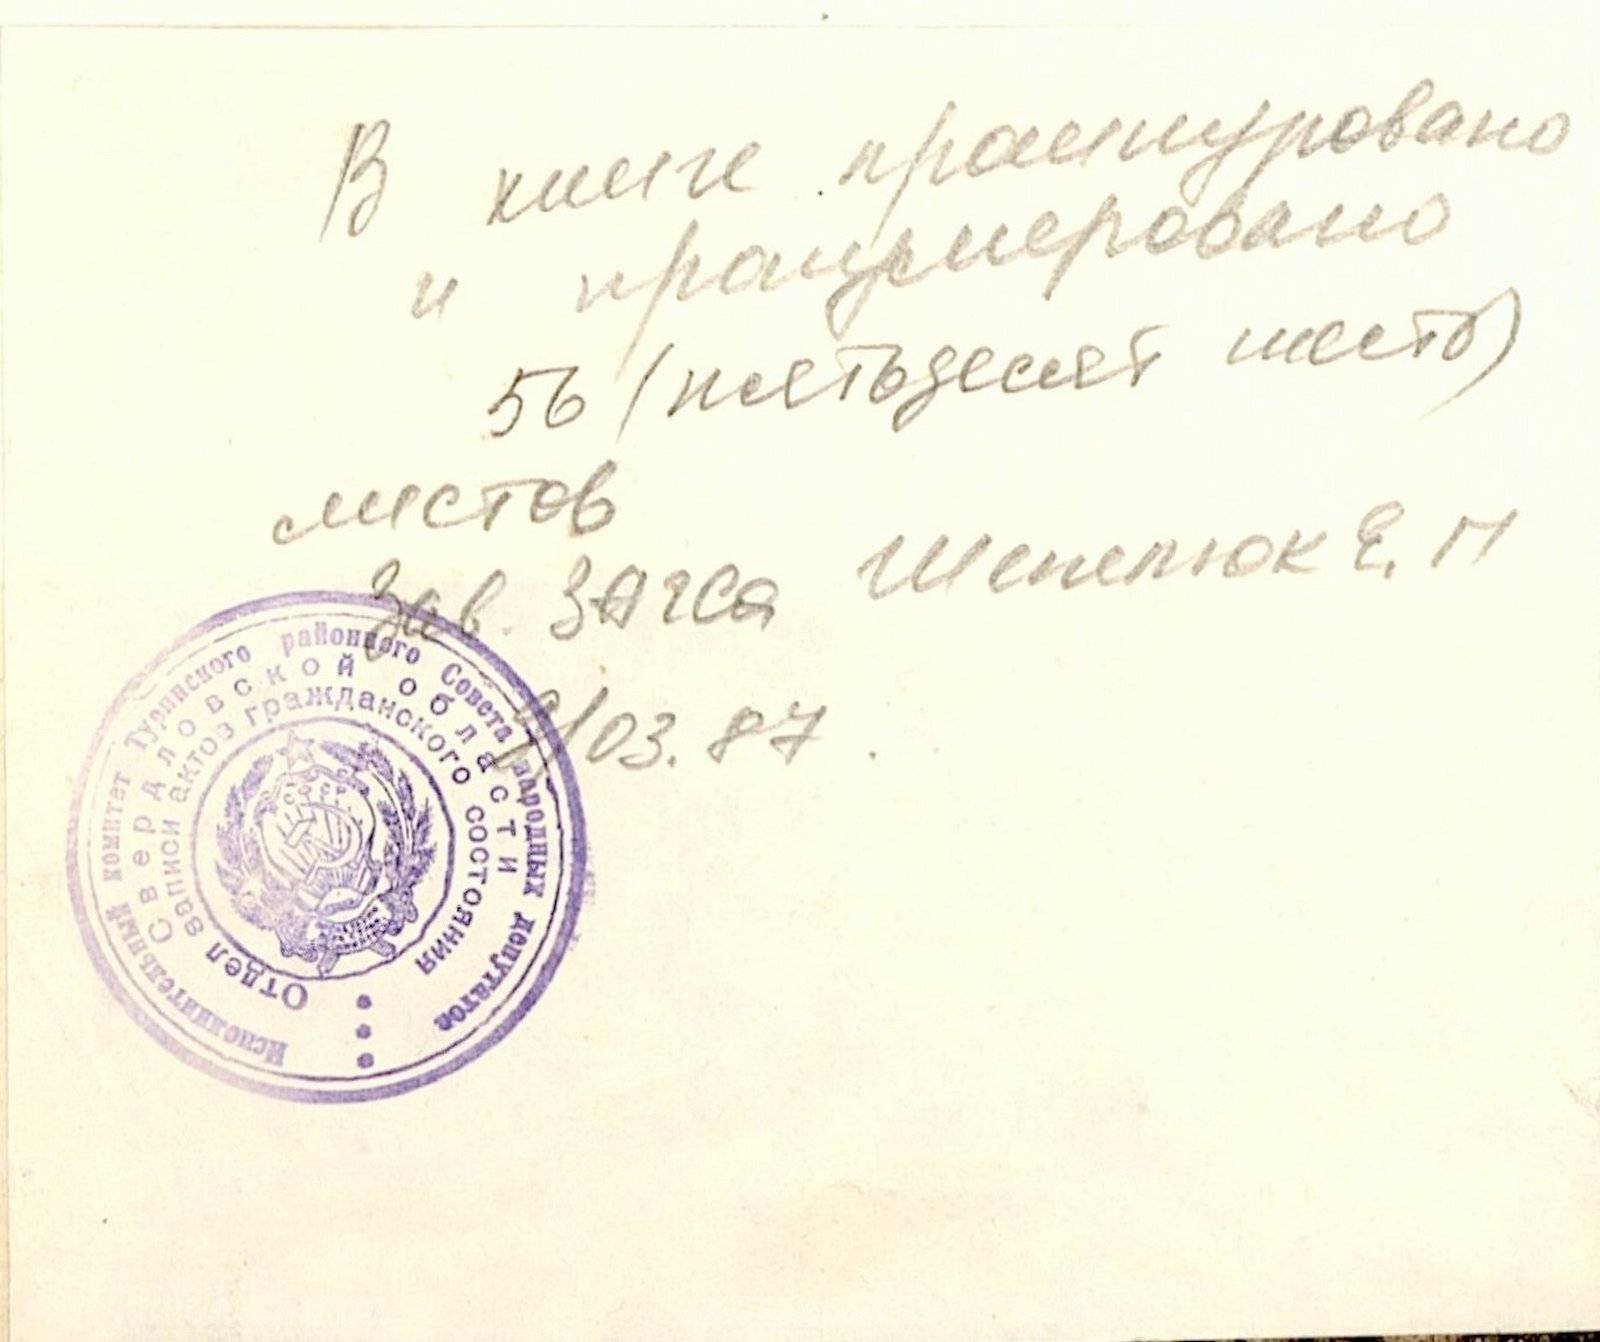 В книге прошнуровано
и пронумеровано
56 (пятьдесят шесть)
листов
Зав. ЗАГСа Шепелюк Е. П
9/03.87.
Исполнительный комитет Туринского районного Совета народных депутатов
Свердловской области
Отдел записи актов гражданского состояния
СССР